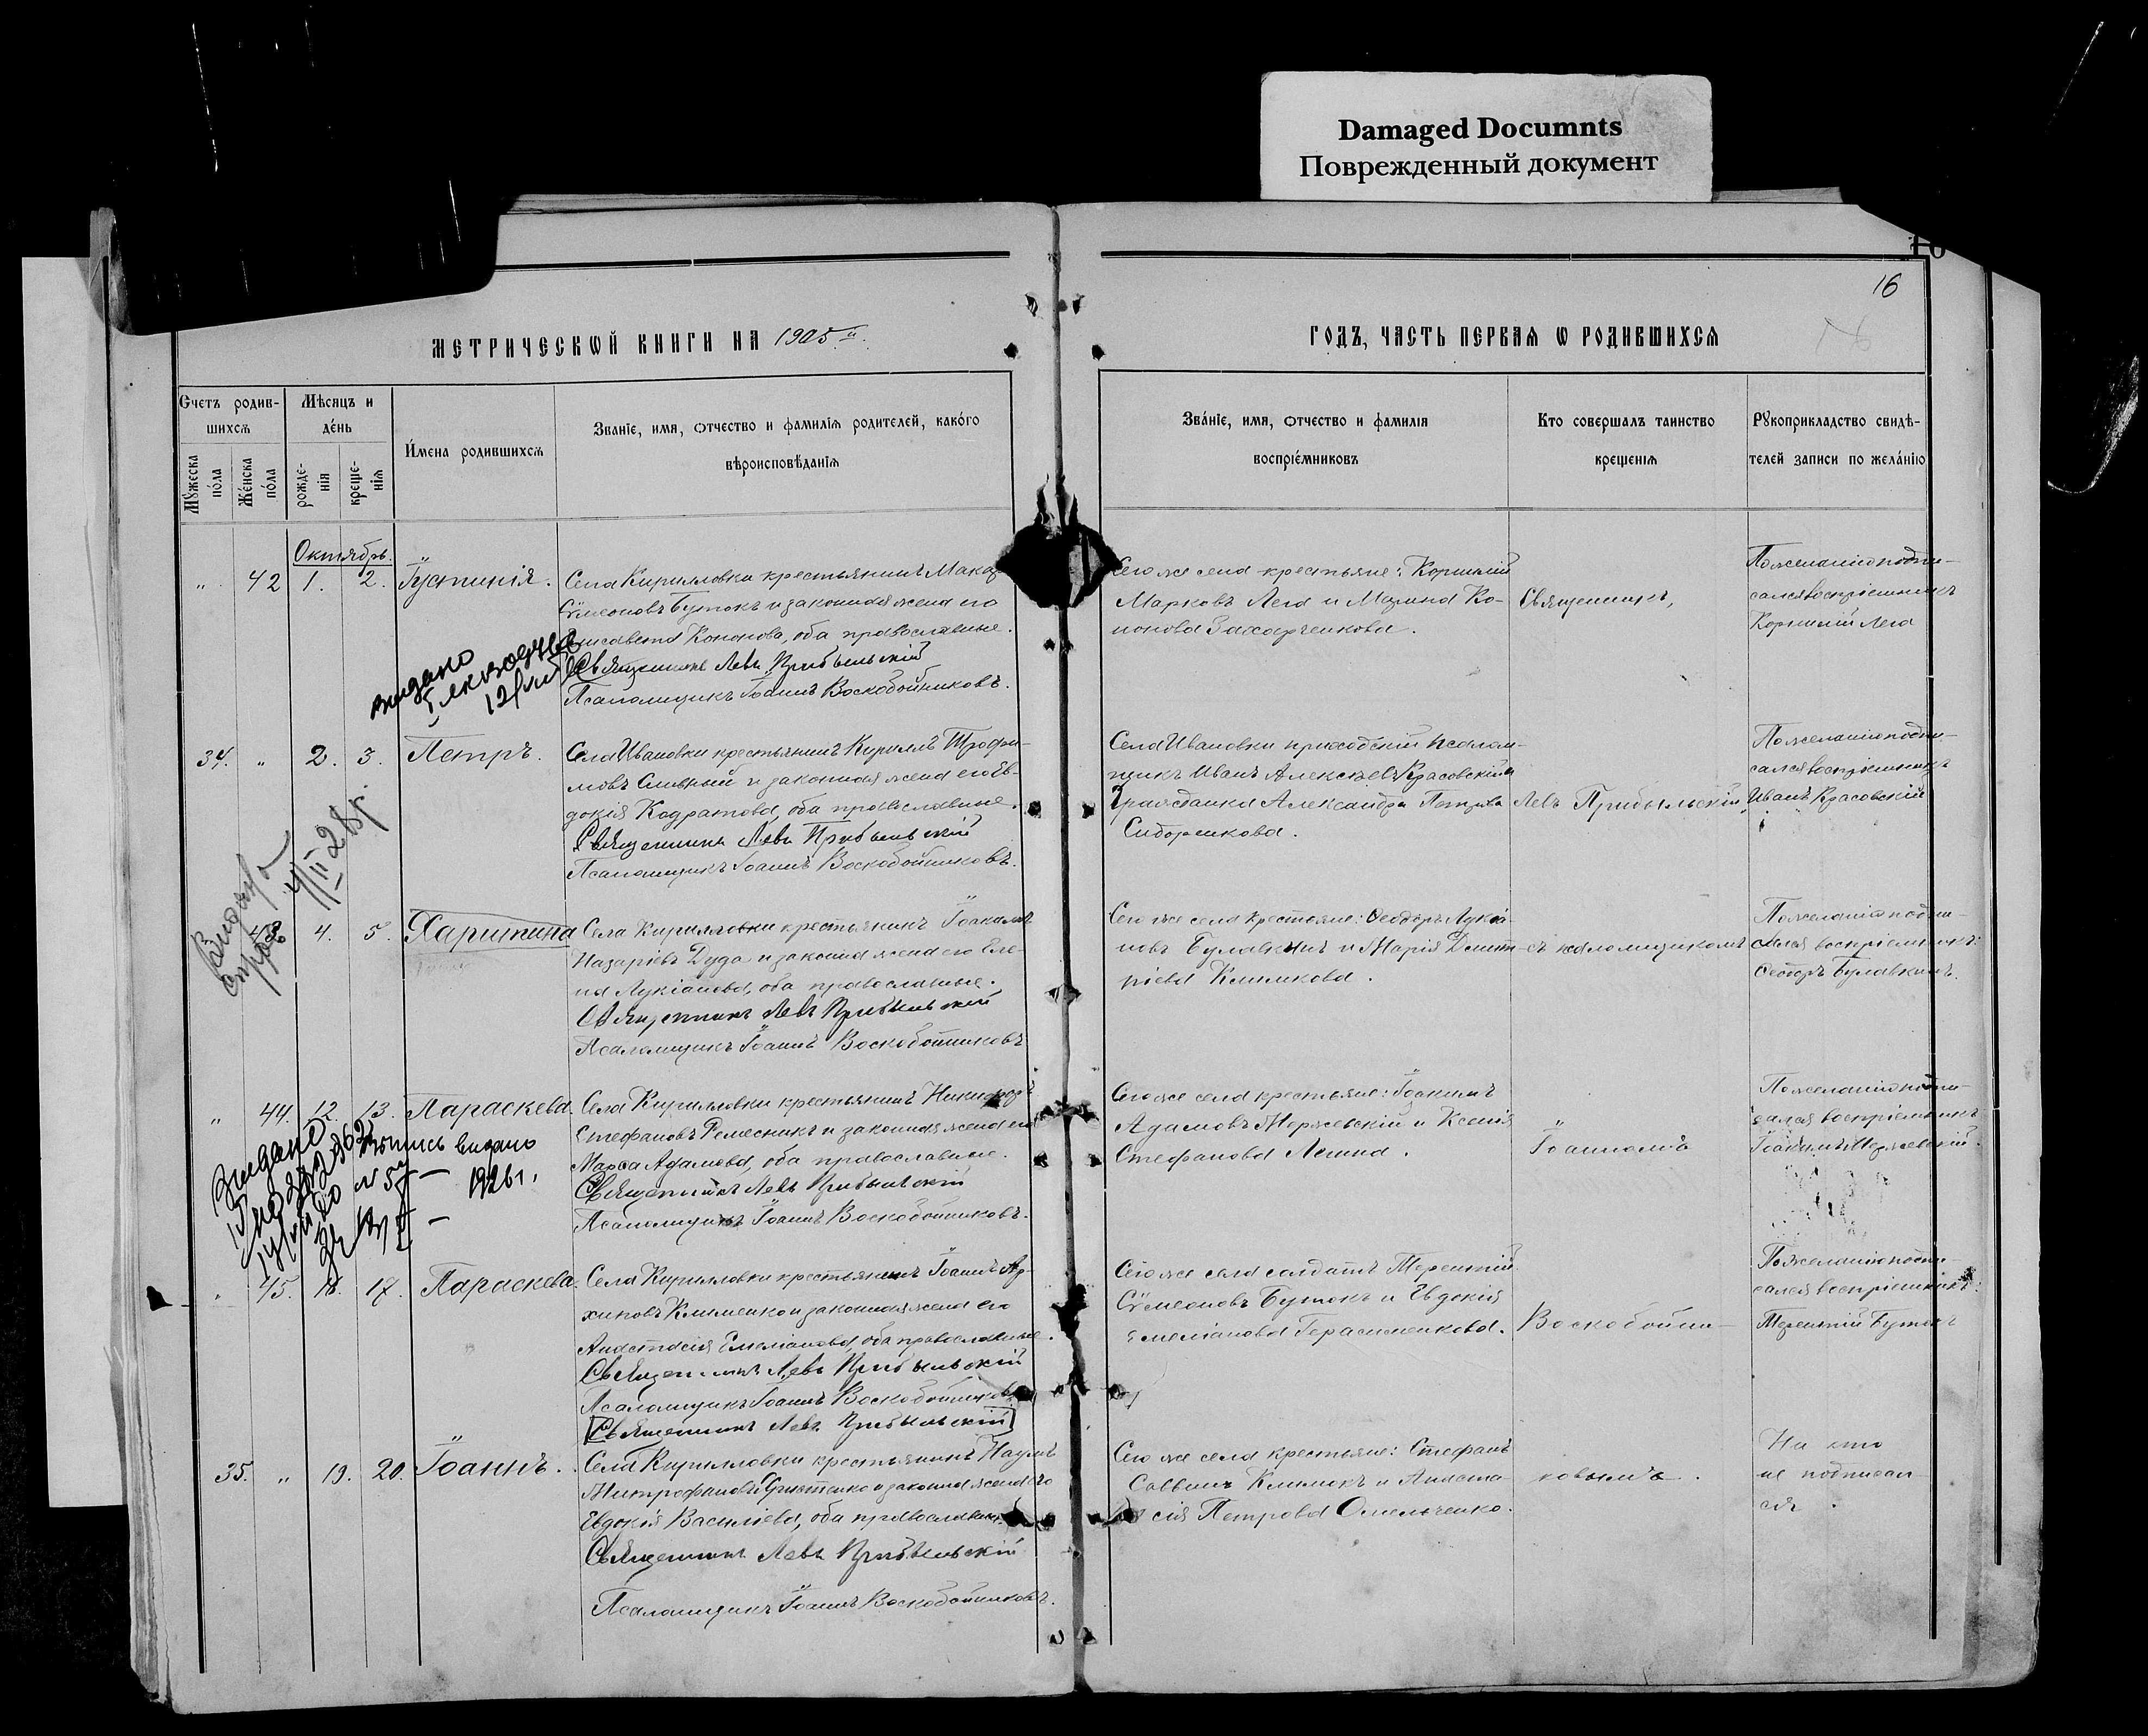 Damaged Documnts
Поврежденный документ
16
МЕТРИЧЕСКѠЙ КНИГИ НА 1905й
ГОДЪ, ЧАСТЬ ПЕРВАЯ Ѡ РОДИВШИХСЯ
Счетъ родив-
шихся
Мѣсяцъ и
де́нь
Мꙋжеска
по́ла
Же́нска
по́ла
рожде-
нія
креще-
нія
И́мена родившихся
Званіе, имя, ѻтчество и фамилія родителей, како́го
вѣроисповѣданія
Зва́ніе, имя, ѻтчество и фамилія
воспріе́мниковъ
Кто совершалъ таинство
крещенія
Рꙋкоприкладство свидѣ-
телей записи по жела́нію
Октябрь.
" 42 1. 2. Іустинія.
Села Кирилловки крестьянинъ Мака
Сѵмеоновъ Бутокъ и законная жена его
Елисавета Кононова, оба православные.
Священникъ Левъ Прибыльскій
Псаломщикъ Іоаннъ Воскобойниковъ.
Сего же села крестьяне: Корнилій
Марковъ Лега и Марина Ко-
нонова Захарченкова.
Священникъ,
По желанію подпи-
сался воспріемникъ
Корнилій Лега
видано
34. " 2. 3. Петръ.
Села Ивановки крестьянинъ Кириллъ Трофи-
мовъ Сильный и законная жена его Ев-
докія Кодратова, оба православные.
Священникъ Левъ Прибыльскій
Псаломщикъ Іоаннъ Воскобойниковъ.
Села Ивановки приходскій псалом-
щикъ Иванъ Алексѣевъ Красовскій и
гражданка Александра Петрова
Сидоренкова.
Левъ Прибыльскій
По желанію подпи-
сался воспріемникъ
Иванъ Красовскій
4/II 28 г.
43 4. 5. Харитина
Села Кирилловки крестьянинъ Іоакимъ
Назаріевъ Дуда и законная жена его Еле-
на Лукіанова, оба православные.
Священникъ Левъ Прибыльскій
Псаломщикъ Іоаннъ Воскобойниковъ
Сего же села крестьяне: Ѳеодоръ Лукіа-
новъ Булавкинъ и Марія Димит-
ріева Климкова.
съ псаломщикомъ
По желанію подпи-
сался воспріемникъ:
Ѳеодоръ Булавкинъ.
" 44. 12. 13. Параскева.
Села Кирилловки крестьянинъ Никифоръ
Стефановъ Ремесникъ и законная жена его
Марѳа Адамова, оба православные.
Священникъ Левъ Прибыльскій
Псаломщикъ Іоаннъ Воскобойниковъ.
Сего же села крестьяне: Іоакимъ
Адамовъ Мержевскій и Ксенія
Стефанова Лешна.
Іоанномъ
По желанію подпи-
сался воспріемникъ
Іоакимъ Мержевскій.
видано
1926 г.
45. 16. 17. Параскева.
Села Кирилловки крестьянинъ Іоаннъ Ар-
хиповъ Клименко и законная жена его
Анастасія Емеліанова, оба православные.
Священникъ Левъ Прибыльскій
Псаломщикъ Іоаннъ Воскобойниковъ
Священникъ Левъ Прибыльскій
Сего же села солдатъ Терентій
Сѵмеоновъ Бутокъ и Евдокія
Емеліанова Герасименкова.
Воскобойни-
По желанію подпи-
сался воспріемникъ:
Терентій Бутокъ
35. " 19. 20. Іоаннъ.
Села Кирилловки крестьянинъ Наумъ
Митрофановъ Христенко и законная жена его
Евдокія Василіева, оба православные.
Священникъ Левъ Прибыльскій
Псаломщикъ Іоаннъ Воскобойниковъ.
Сего же села крестьяне: Стефанъ
Саввинъ Климокъ и Анаста-
сія Петрова Омельченко.
ковымъ.
Ни кто
не подписал-
ся.